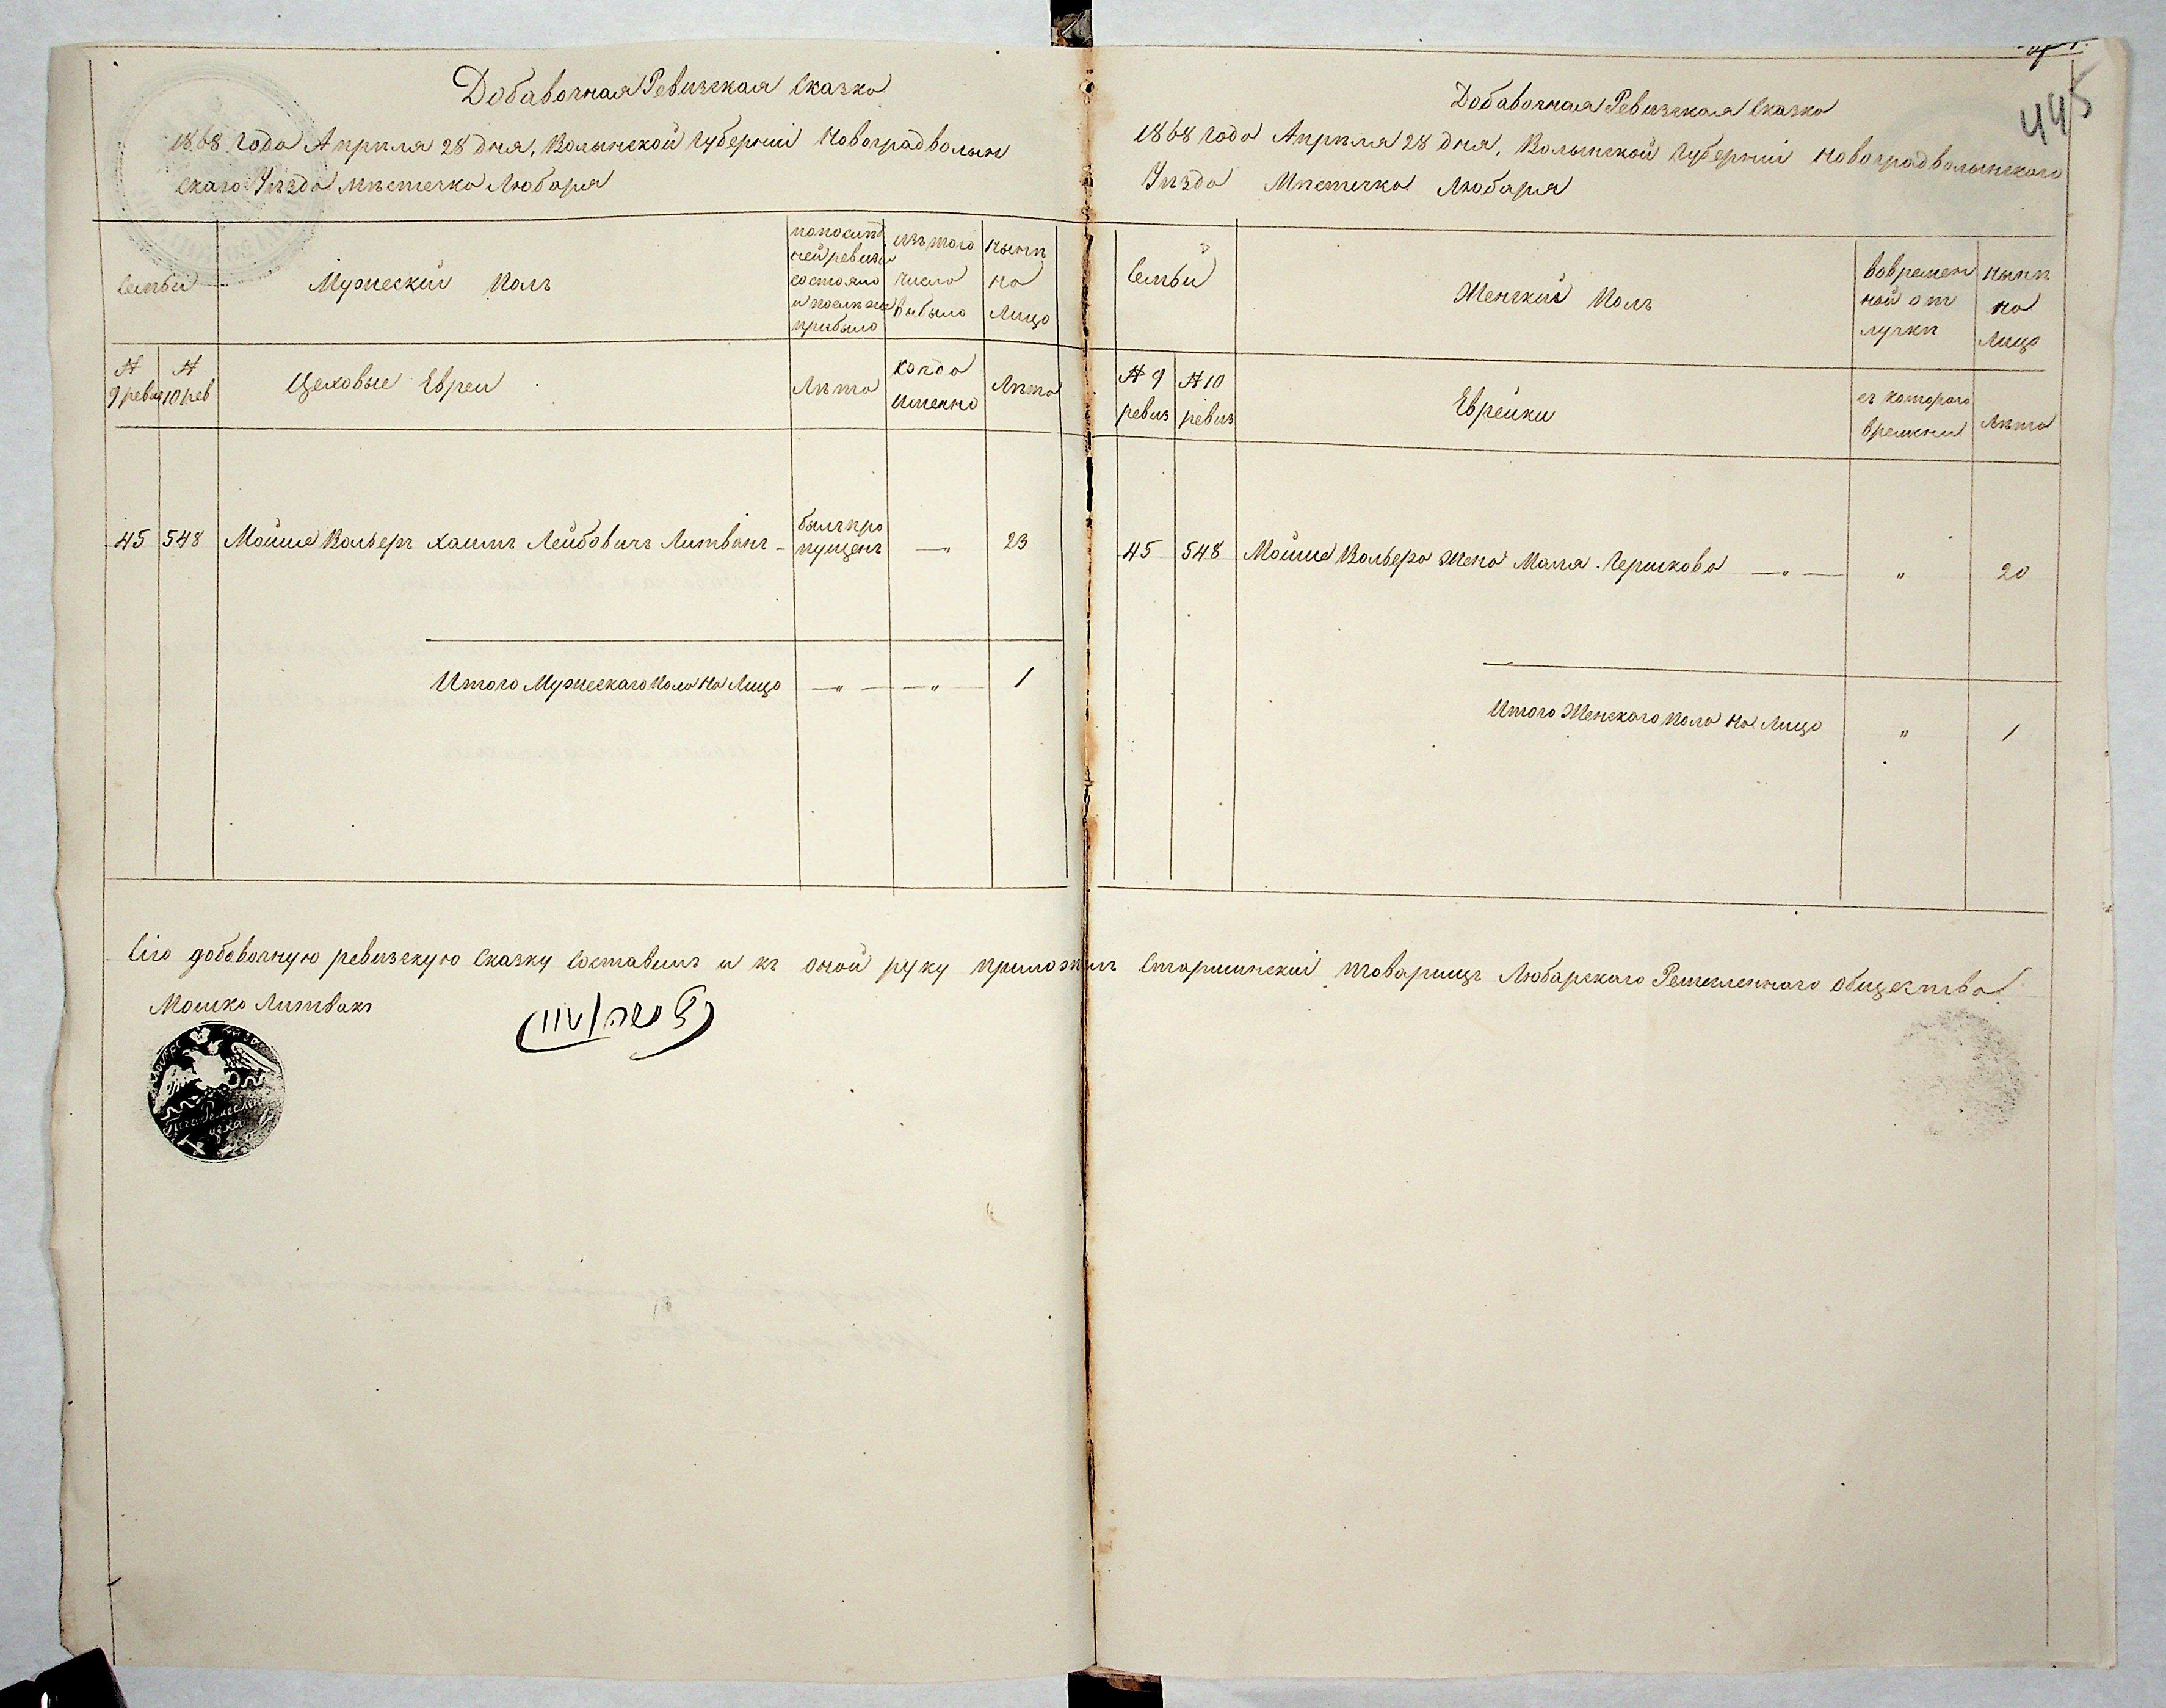 Добавочная Ревизская Сказка
1868 года Апрѣля 28 дня, Волынской Губерніи Новоградволын
скаго Уѣзда мѣстечка Любара
Семьи
Мужеский Полъ
по послѣд
ней ревизіи
состояло
и послѣ же
прибыло
изъ того
числа
выбыло
нынѣ
на
Лицо
№
9 ревиз
№
10 рев
Цеховые Евреи
Лѣта
когда
именно
Лѣта
45 548 Мойше Вольеръ Хаимъ Лейбовичъ Литвакъ
былъ про
пущенъ
— „
23
Итого Мужескаго пола на Лицо — „ — — „ — 1
Добавочная Ревизская Сказка
445
1868 года Апрѣля 28 дня, Волынской Губерніи Новоградволынскаго
Уѣзда Мѣстечка Любара
Семьи
Женский Полъ
вовремен
ной от
лучкѣ
нынѣ
на
Лицо
№ 9
ревиз
№ 10
ревиз
Еврейки
съ котораго
времени
Лѣта
45 548 Мойше Вольера жена Маля Гершкова — „ — „ 20
Итого Женскаго пола на Лицо „ 1
Сію добавочную ревизскую сказку составилъ и къ оной руку приложилъ Старшинский товарищъ Любарскаго Ремесленнаго общества
Мошко Литвакъ